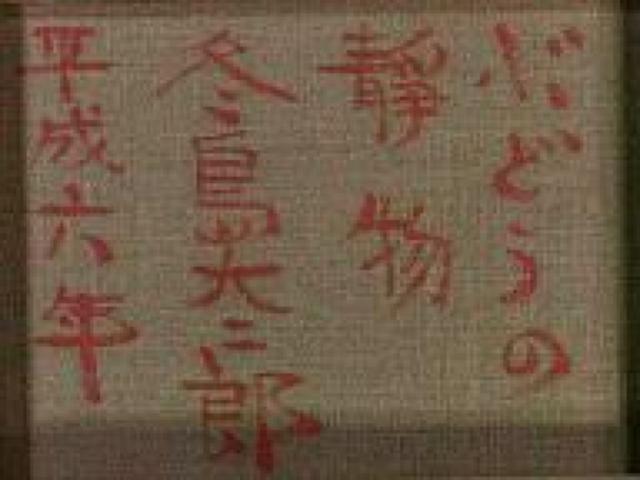 ぶどうの
靜物
冬島英二郎
平成六年